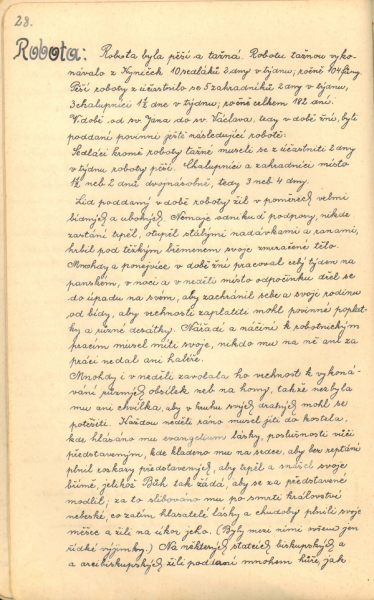 28.
Robota: Robota byla pěší a tažná. Robotu tažnou vyko-
návalo z Kyniček 10 sedláků 3 dny v týdnu; ročně 104 dny.
Pěší roboty z účastnilo se 5 zahradníků 2 dny v týdnu,
3 chalupníci 1½ dne v týdnu; ročně celkem 182 dní.
V době od sv. Jana do sv. Václava, tedy v době žní, byli
poddaní povinni ještě následující robotě:
Sedláci kromě roboty tažné museli se z účastniti 2 dny
v týdnu roboty pěší. Chalupníci a zahradníci místo
1½ neb 2 dnů dvojnásobně, tedy 3 neb 4 dny.
Lid poddaný v době roboty žil v poměrech velmi
bídných a ubohých. Nemaje odnikud podpory, nikde
zastání trpěl, otupěl stálými nadávkami a ranami,
hrbil pod těžkým břemenem svoje zmořené tělo.
Mnohdy a ponejvíce v době žní pracoval celý týden na
panském, v noci a v neděli místo odpočinku dřel se
do úpadu na svém, aby zachránil sebe a svoji rodinu
od bídy, aby vrchnosti zaplatiti mohl povinné poplat-
ky a různé desátky. Nářadí a náčiní k robotnickým
pracím musel míti svoje, nikdo mu na ně ani za
práci nedal ani haléře.
Mnohdy i v neděli zavolala ho vrchnost k vykoná-
vání různých obsílek neb na hony, takže nezbyla
mu ani chvilka, aby v kruhu svých drahých mohl se
potěšiti. Každou neděli ráno musel jíti do kostela,
kde hlásáno mu evangelium lásky, poslušnosti vůči
představeným, kde kladeno mu na srdce, aby bez reptání
plnil rozkazy představených, aby trpěl a snášel svoje
břímě, jelikož Bůh tak žádá, aby se za představené
modlil; za to slibováno mu po smrti království
nebeské, co zatím hlasatelé lásky a chudoby plnili svoje
měšce a žili na úkor jeho. (Byly mezi nimi ovšem jen
řídké výjimky.) Na některých statcích biskupských a
a arcibiskupských žili poddaní mnohem hůře, jak